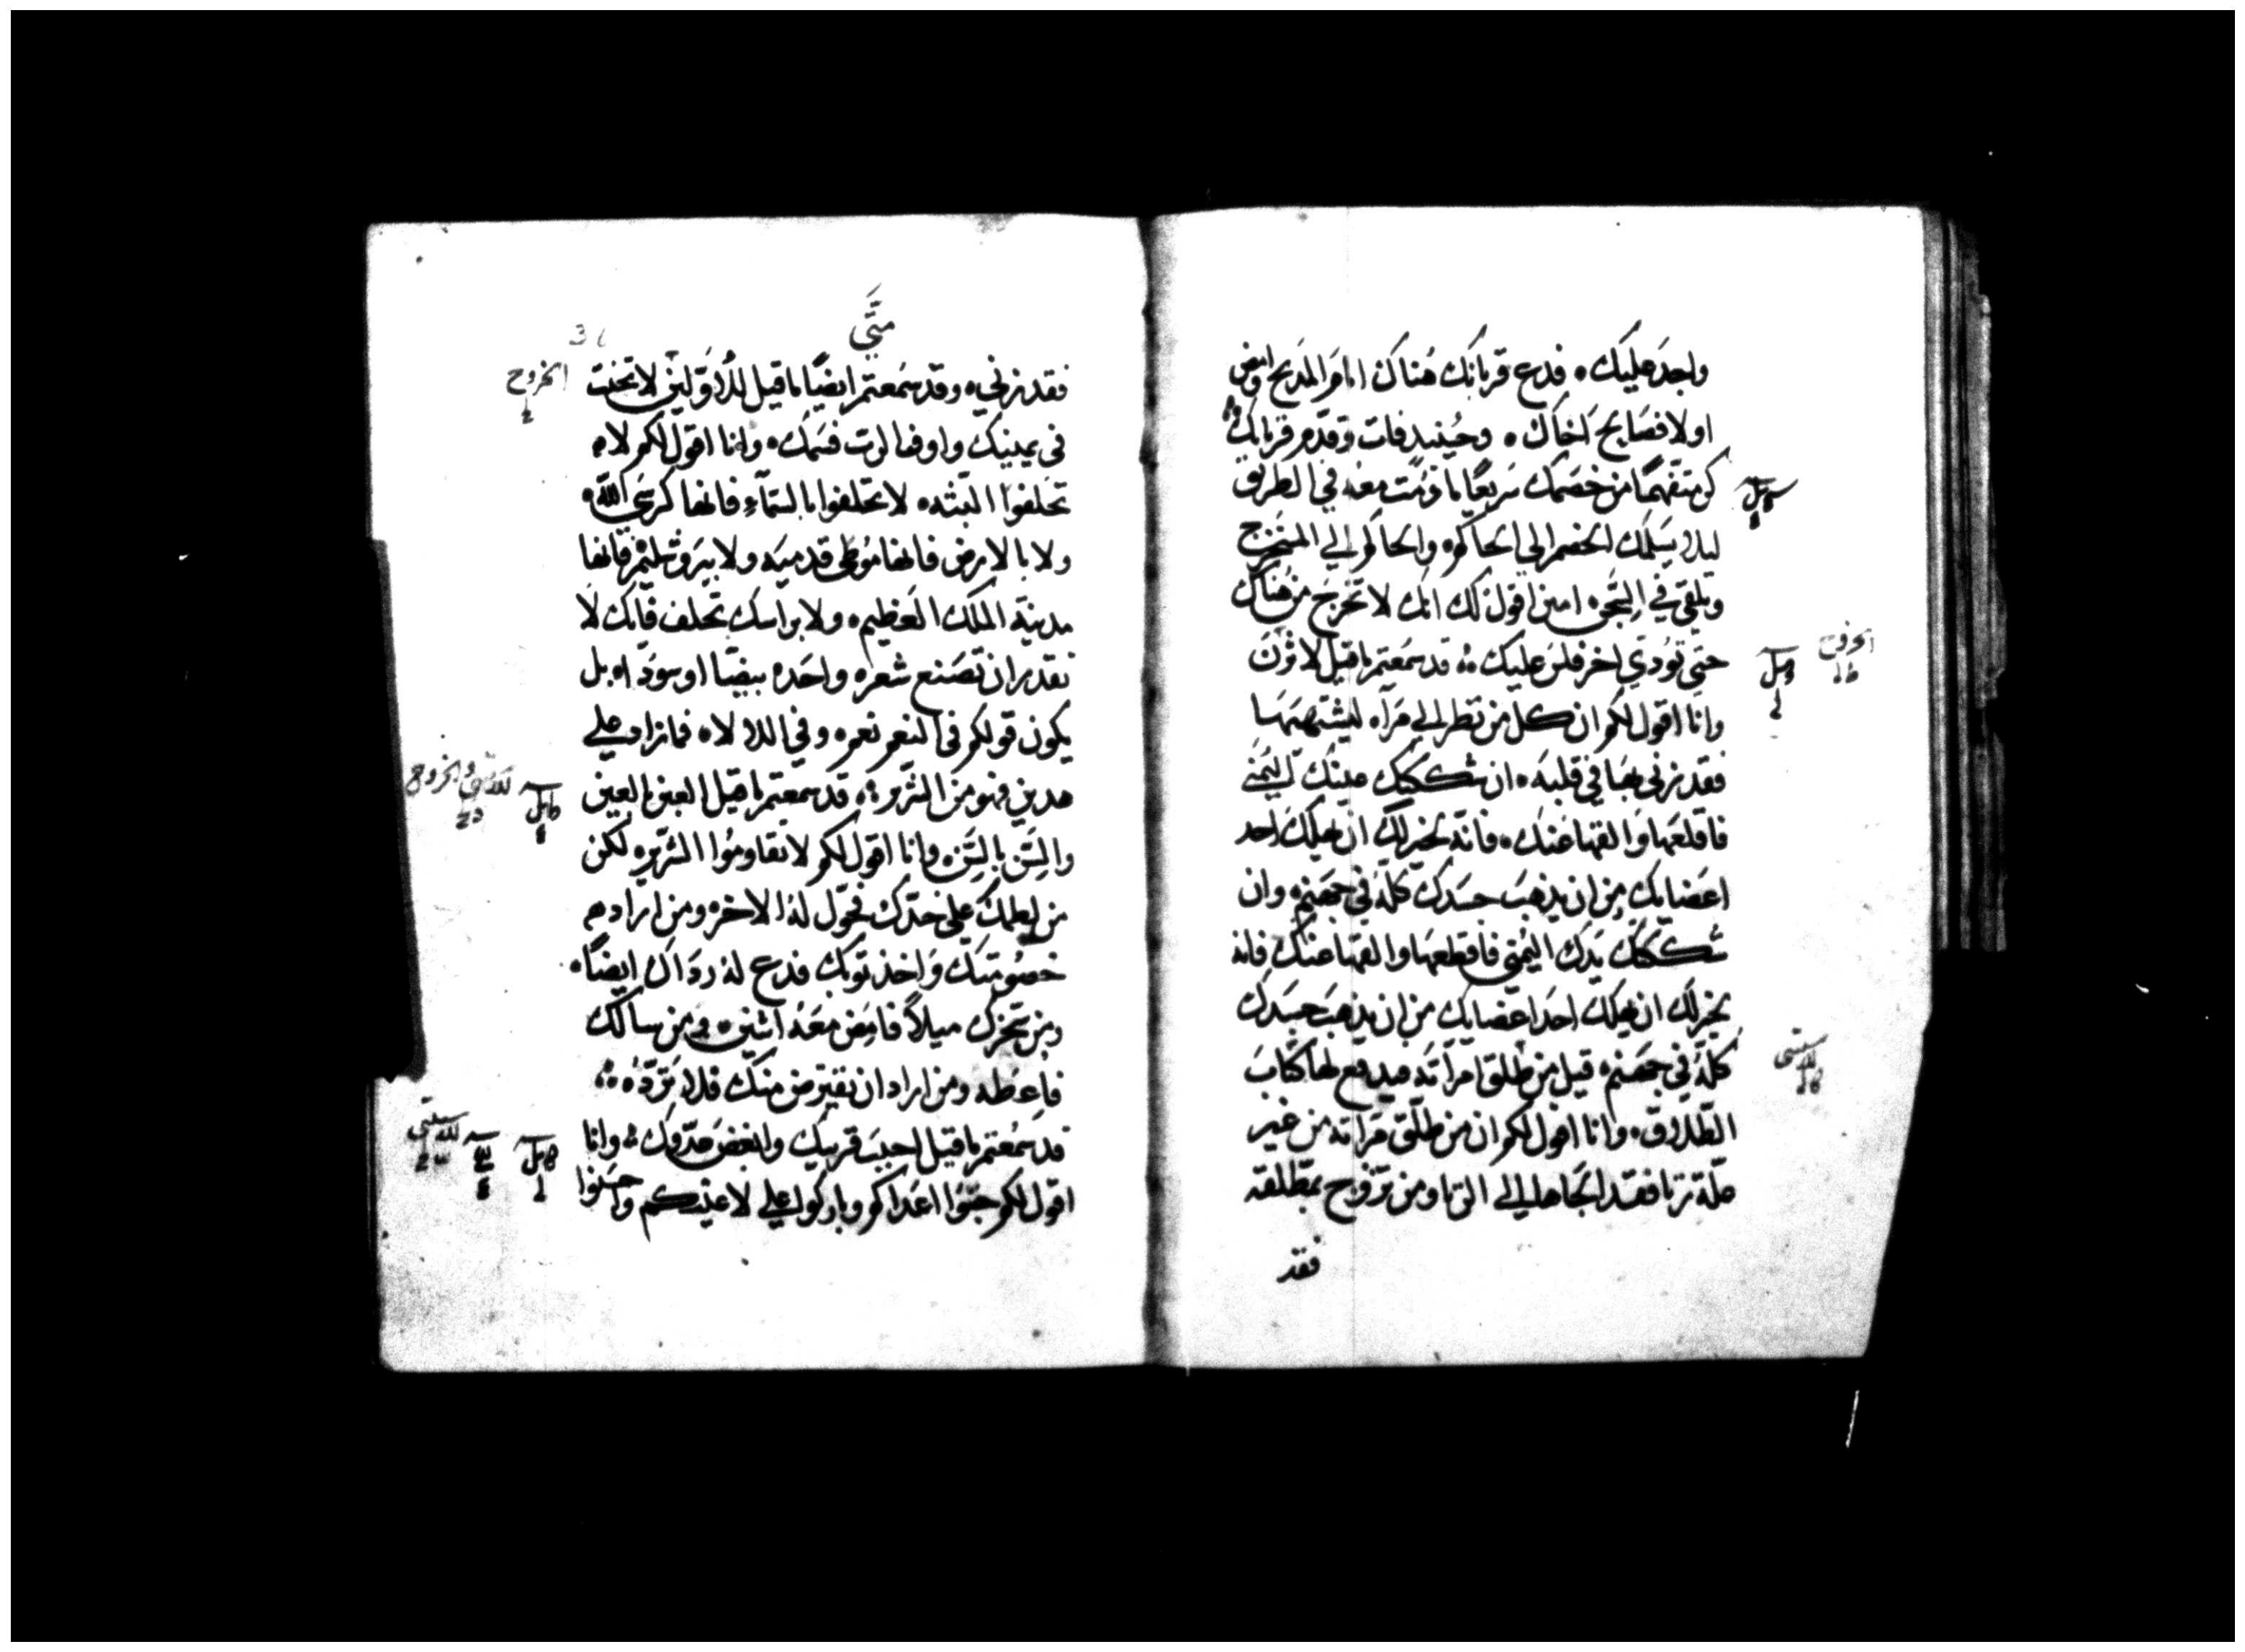 واجد عليك ٥ فدع قربانك هناك امام المدبح وامض
اولا فصالح اخاك ٥ وحينيد فات وقدم قربانك
كن متفهمًا من خصمك سريعًا ما دمت معه في الطريق
ليلا يسلمك الخصم الي الحاكم ٥ والحاكم الي المستخرج
وتلقي في السجن ٥ امين اقول لك انك لا تخرج من هناك
حتي تودي اخر فلس عليك ۞ قد سمعتم ما قيل لا تزن
وانا اقول لكم ان كل من نظر الي مرآه ليشتهيها
فقد زني بها في قلبه ٥ ان شككتك عينك اليمني
فاقلعها والقها عنك ٥ فانه لخير لك ان يهلك احد
اعضايك من ان يذهب جسدك كله في جهنم ٥ وان
شككتك يدك اليمني فاقطعها والقها عنك فانه
لخير لك ان يهلك احد اعضايك من ان يذهب جسدك
كله في جهنم ٥ قيل من طلق امراته فيدفع لها كتاب
الطلاق ٥ وانا اقول لكم ان من طلق مراته من غير
علة زنا فقد الجاها الي الزنا ومن تزوج بمطلقه
فقد
الخروج
متي
فقد زني ٥ وقد سمعتم ايضًا ما قيل للاولين لا تحنث
في يمينك واوف الرب قسمك ٥ وانا اقول لكم لا
تحلفوا البته ٥ لا تحلفوا بالسمآء فانها كرسي الله ٥
ولا بالارض فانها موطي قدميه ولا بيروشليم فانها
مدينة الملك العظيم ٥ ولا براسك تحلف فانك لا
تقدر ان تصنع شعره واحده بيضا او سودا ٥ بل
يكون قولكم في النعم نعم ٥ وفي اللا لا ٥ فما زاد علي
هدين فهو من الشرير ۞ قد سمعتم ما قيل العين بالعين
والسن بالسن ٥ وانا اقول لكم لا تقاوموا الشرير ٥ لكن
من لطمك علي خدك فحول له الاخر ٥ ومن اراد
خصومتك واخذ توبك فدع له رداك ايضًا ٥
ومن سخرك ميلاً فامض معه اثنين ٥ ومن سالك
فاعطه ومن اراد ان يقترض منك فلا ترده ۞
قد سمعتم ما قيل احبب قريبك وابغض عدوك ۞ وانا
اقول لكم حبوا اعداكم وباركوا علي لاعنيكم واحسنوا
الخروج